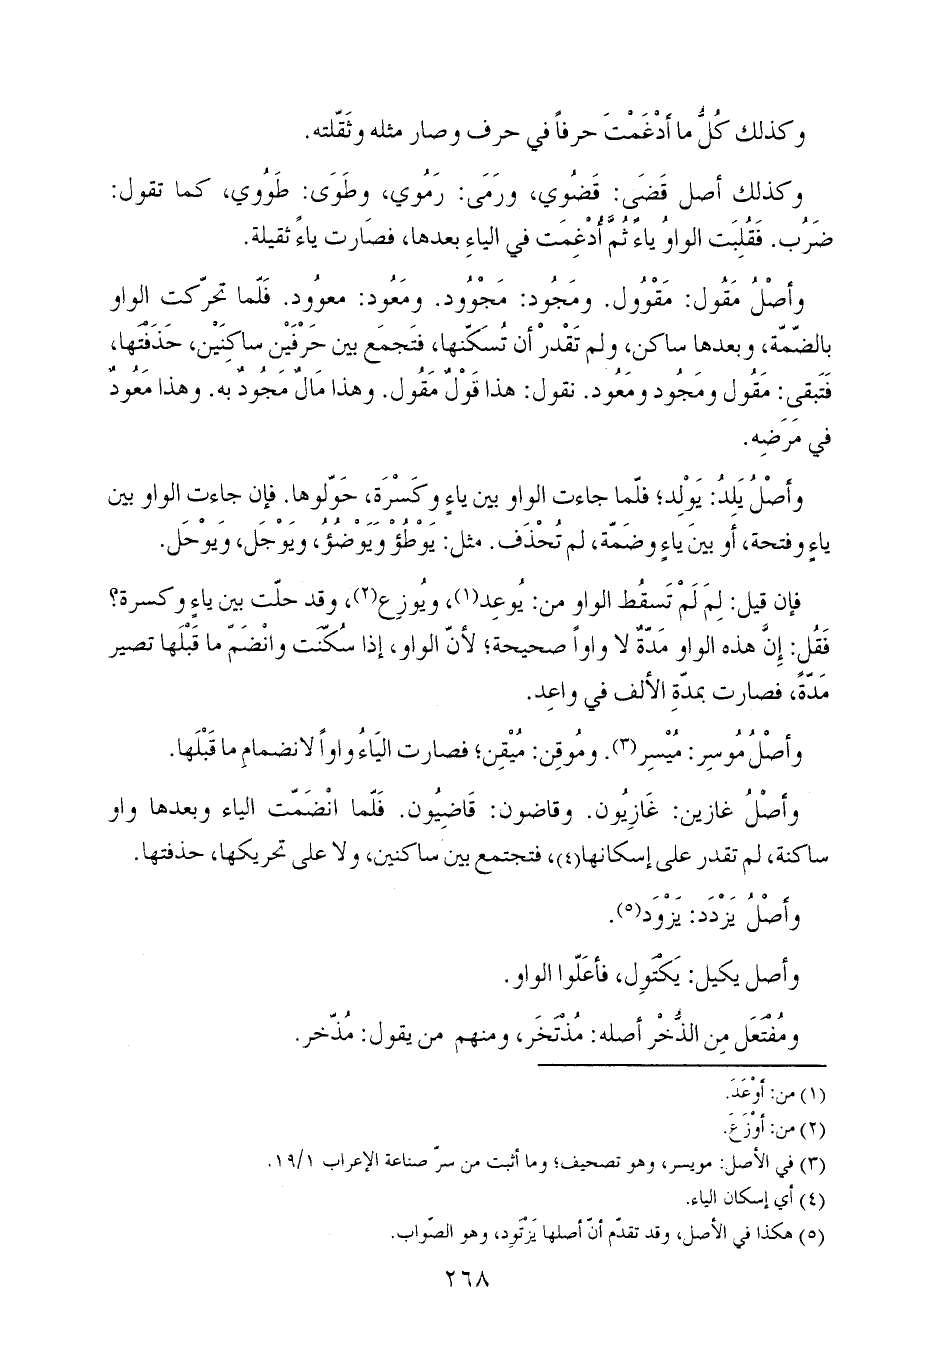 وكذلك كُلُّ ما أدْغَمْتَ حرفاً في حرف وصار مثله وثَقّلته.
وكذلك أصل قَضَى: قَضُوي، ورَمَى: رَمُوي، وطَوَى: طَوُوي، كما تقول:
ضَرُب. فَقُلِبَت الواوُ ياءً ثُمَّ أُدْغِمَت في الياءِ بعدها، فصَارت ياءً ثقيلة.
وأصْلُ مَقُول: مَقْوُول. ومَجُود: مَجْوُود. ومَعُود: معوُود. فَلّما تحرّكت الواو
بالضّمّة، وبعدها ساكن، ولم تَقْدْر أن تُسَكّنها، فتَجمَع بين حَرْفَيْن ساكِنَيْن، حَذَفْتَها،
فَتَبقى: مَقُول ومَجُود ومَعُود. نقول: هذا قَوْلٌ مَقُول. وهذا مَالٌ مَجُودٌ به. وهذا مَعُودٌ
في مَرَضِه.
وأصْلُ يَلِدُ: يَوْلِد؛ فلّما جاءت الواو بين ياءٍ وكَسْرَة، حَوّلوها. فإن جاءت الواو بين
ياءٍ وفتحة، أو بينَ ياءٍ وضَمّة، لم تُحْذَف. مثل: يَوْطُؤْ وَيَوْضُؤُ، ويَوْجَل، ويَوْحَل.
فإن قيل: لِمَ لَمْ تَسقُط الواو من: يُوعِد(١)، ويُوزِع(٢)، وقد حلّت بين ياءٍ وكسرة؟
فَقُل: إنَّ هذه الواو مَدّةٌ لا واواً صحيحة؛ لأنّ الواو، إذا سُكّنَت وانْضَمّ ما قَبْلَها تصير
مَدّةً، فصارت بمَدّةِ الألف في واعِد.
وأصْلُ مُوسِر: مُيْسِر(٣). ومُوقِن: مُيْقِن؛ فصارت اليَاءُ واواً لانضمامِ ما قَبْلَها.
وأصْلُ غازين: غَازِيُون. وقاضون: قَاضِيُون. فَلّما انْضَمّت الياء وبعدها واو
ساكنة، لم تقدر على إسكانها(٤)، فتجتمع بين ساكنين، ولا على تحريكها، حذفتها.
وأصْلُ يَزْدَد: يَزْوَد(٥).
وأصل يكيل: يَكْتَوِل، فأعَلّوا الواو.
ومُفْتَعَل مِن الذُّخْر أصله: مُذْتَخَر، ومنهم من يقول: مُذّخر.
(١) من: أوْعَدَ.
(٢) من: أوْزَعَ.
(٣) في الأصل: مويسر، وهو تصحيف؛ وما أثبت من سرّ صناعة الإعراب ١٩/١.
(٤) أي إسكان الياء.
(٥) هكذا في الأصل، وقد تقدّم أنّ أصلها يَزْتَوِد، وهو الصّواب.
٢٦٨